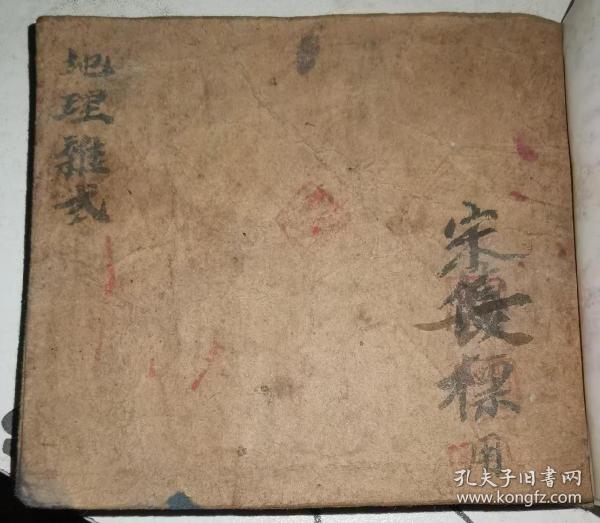 地理雜式
宋俊標用
孔夫子旧书网
www.kongfz.com